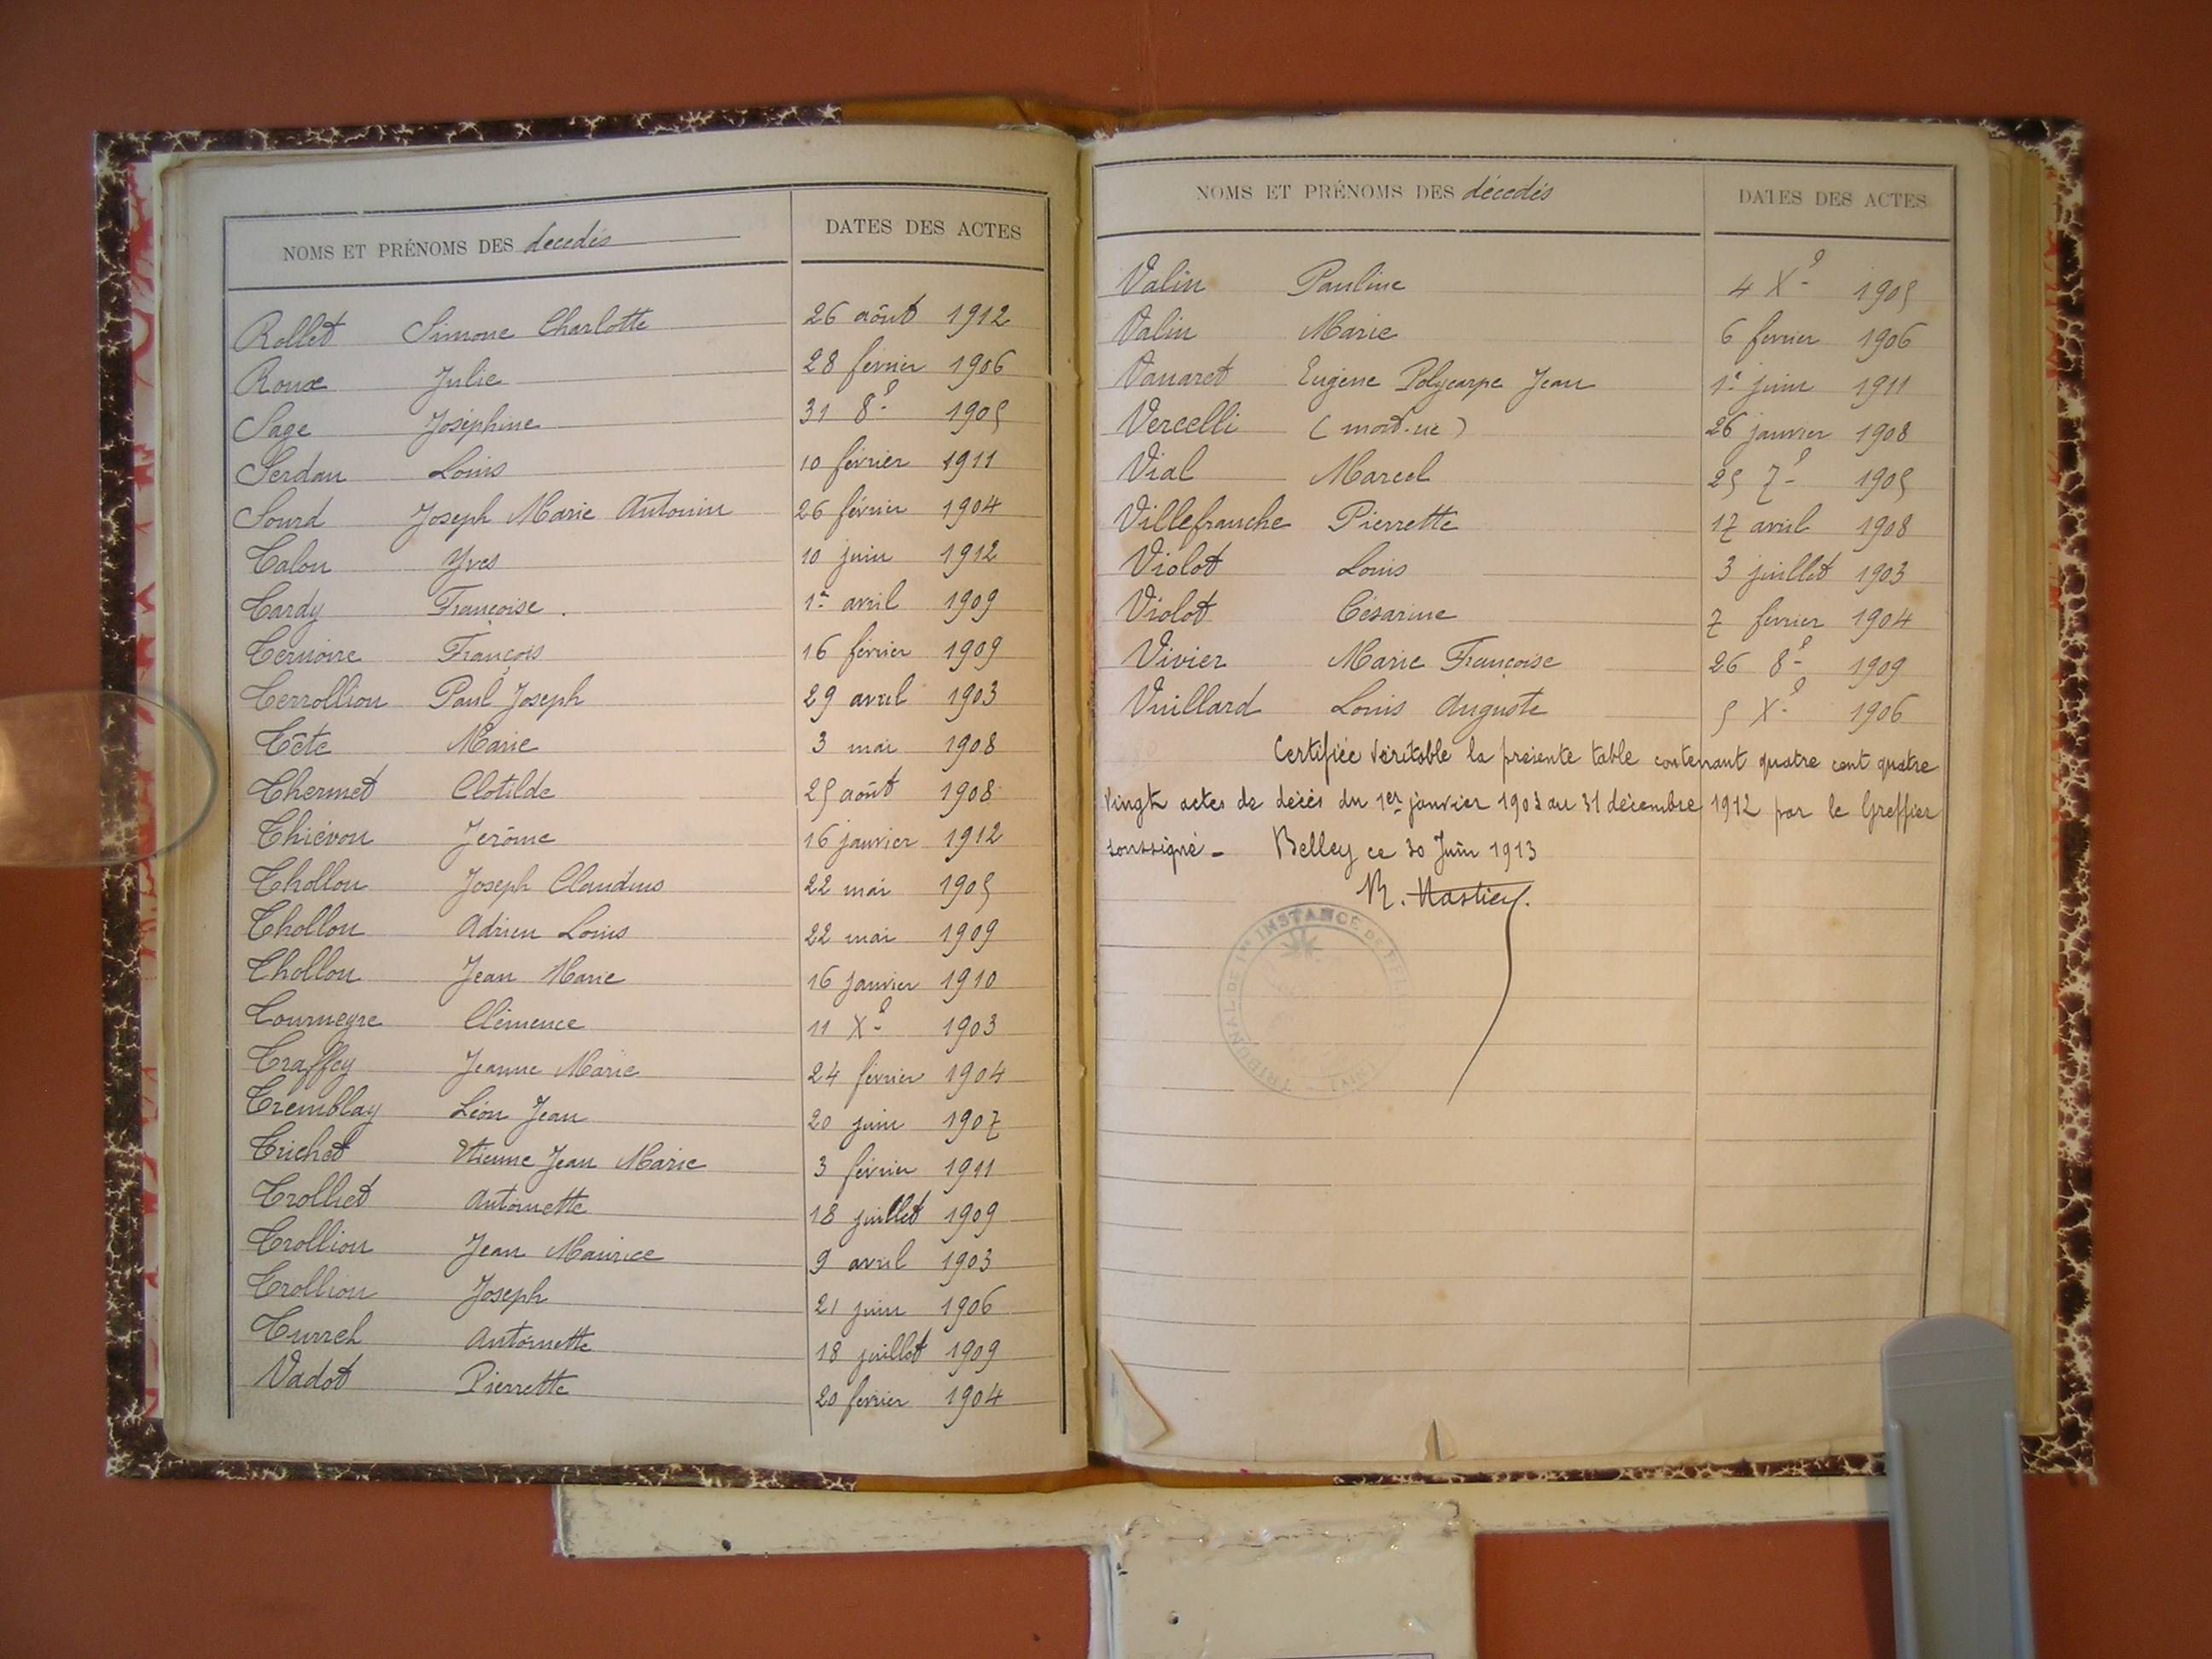 NOMS ET PRÉNOMS DES décédés DATES DES ACTES
Rollet Simone Charlotte 26 août 1912
Roux Julie 28 février 1906
Sage Joséphine 31 8e 1905
Serdan Louis 10 février 1911
Sourd Joseph Marie Antonin 26 février 1904
Talon Yves 10 juin 1912
Tardy Françoise. 1er avril 1909
Ternoire François 16 février 1909
Terrollion Paul Joseph 29 avril 1903
Tête Marie 3 mai 1908
Thermet Clotilde 25 août 1908
Thiévon Jérôme 16 janvier 1912
Thollon Joseph Claudius 22 mai 1905
Thollon Adrien Louis 22 mai 1909
Thollon Jean Marie 16 janvier 1910
Tourneyre Clémence 11 Xe 1903
Traffey Jeanne Marie 24 février 1904
Tremblay Léon Jean 20 juin 1907
Trichet Etienne Jean Marie 3 février 1911
Trolliet Antoinette 18 juillet 1909
Trollion Jean Maurice 9 avril 1903
Trollion Joseph 21 juin 1906
Turrel Antoinette 18 juillet 1909
Vadot Pierrette 20 février 1904
NOMS ET PRÉNOMS DES décédés DATES DES ACTES
Valin Pauline 4 Xe 1905
Valin Marie 6 février 1906
Vanaret Eugène Polycarpe Jean 1er juin 1911
Vercelli (mort-né) 26 janvier 1908
Vial Marcel 25 7e 1905
Villefranche Pierrette 17 avril 1908
Violot Louis 3 juillet 1903
Violot Césarine 7 février 1904
Vivier Marie Françoise 26 8e 1909
Vuillard Louis Auguste 5 Xe 1906
Certifiée véritable la présente table contenant quatre cent quatre
vingt actes de décès du 1er janvier 1903 au 31 décembre 1912 par le Greffier
soussigné - Belley ce 30 Juin 1913
TRIBUNAL DE 1re INSTANCE DE